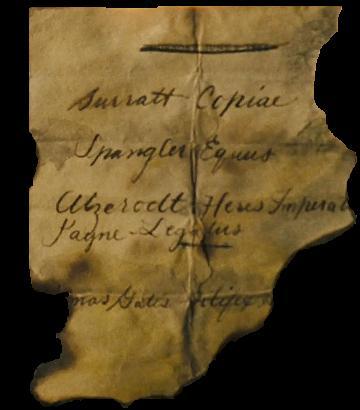 Surratt Copiae
Spangler Equus
Atzerodt Heres Imperat
Payne - Legatus
mas Gates